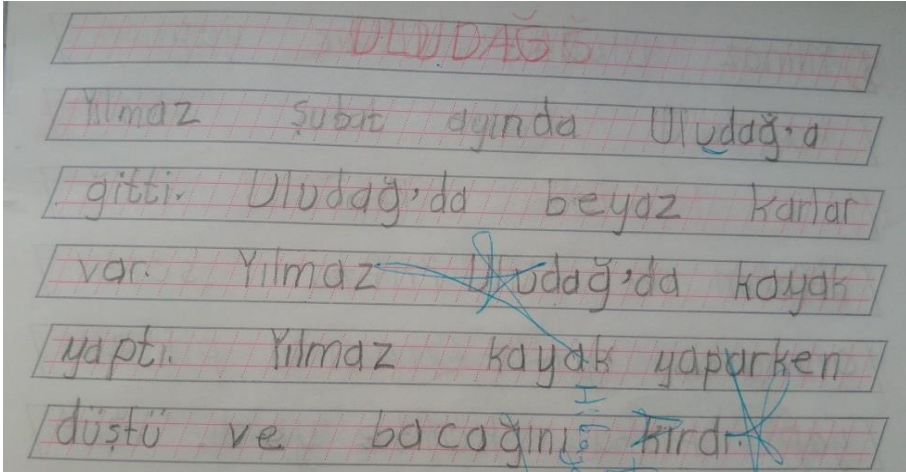 ULUDAĞ
Yılmaz şubat ayında Uludağ'a
gitti. Uludağ'da beyaz karlar
var. Yılmaz Uludağ'da kayak
yaptı. Yılmaz kayak yaparken
düştü ve bacağını kırdı.